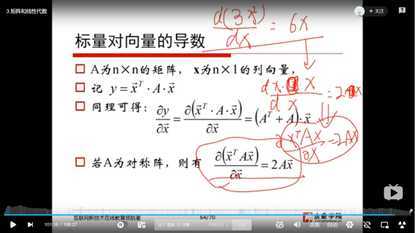 3.矩阵和线性代数
+ 关注
标量对向量的导数
d(3x²)/dx = 6x
A为n×n的矩阵，x为n×1的列向量，
记 y = x⃗ᵀ · A · x⃗
同理可得：
∂y/∂x⃗ = ∂(x⃗ᵀ · A · x⃗)/∂x⃗ = (Aᵀ + A) · x⃗
xᵀAx/∂x = 2Ax
若A为对称阵，则有 ∂(x⃗ᵀAx⃗)/∂x⃗ = 2Ax⃗
互联网新技术在线教育领航者
64/70